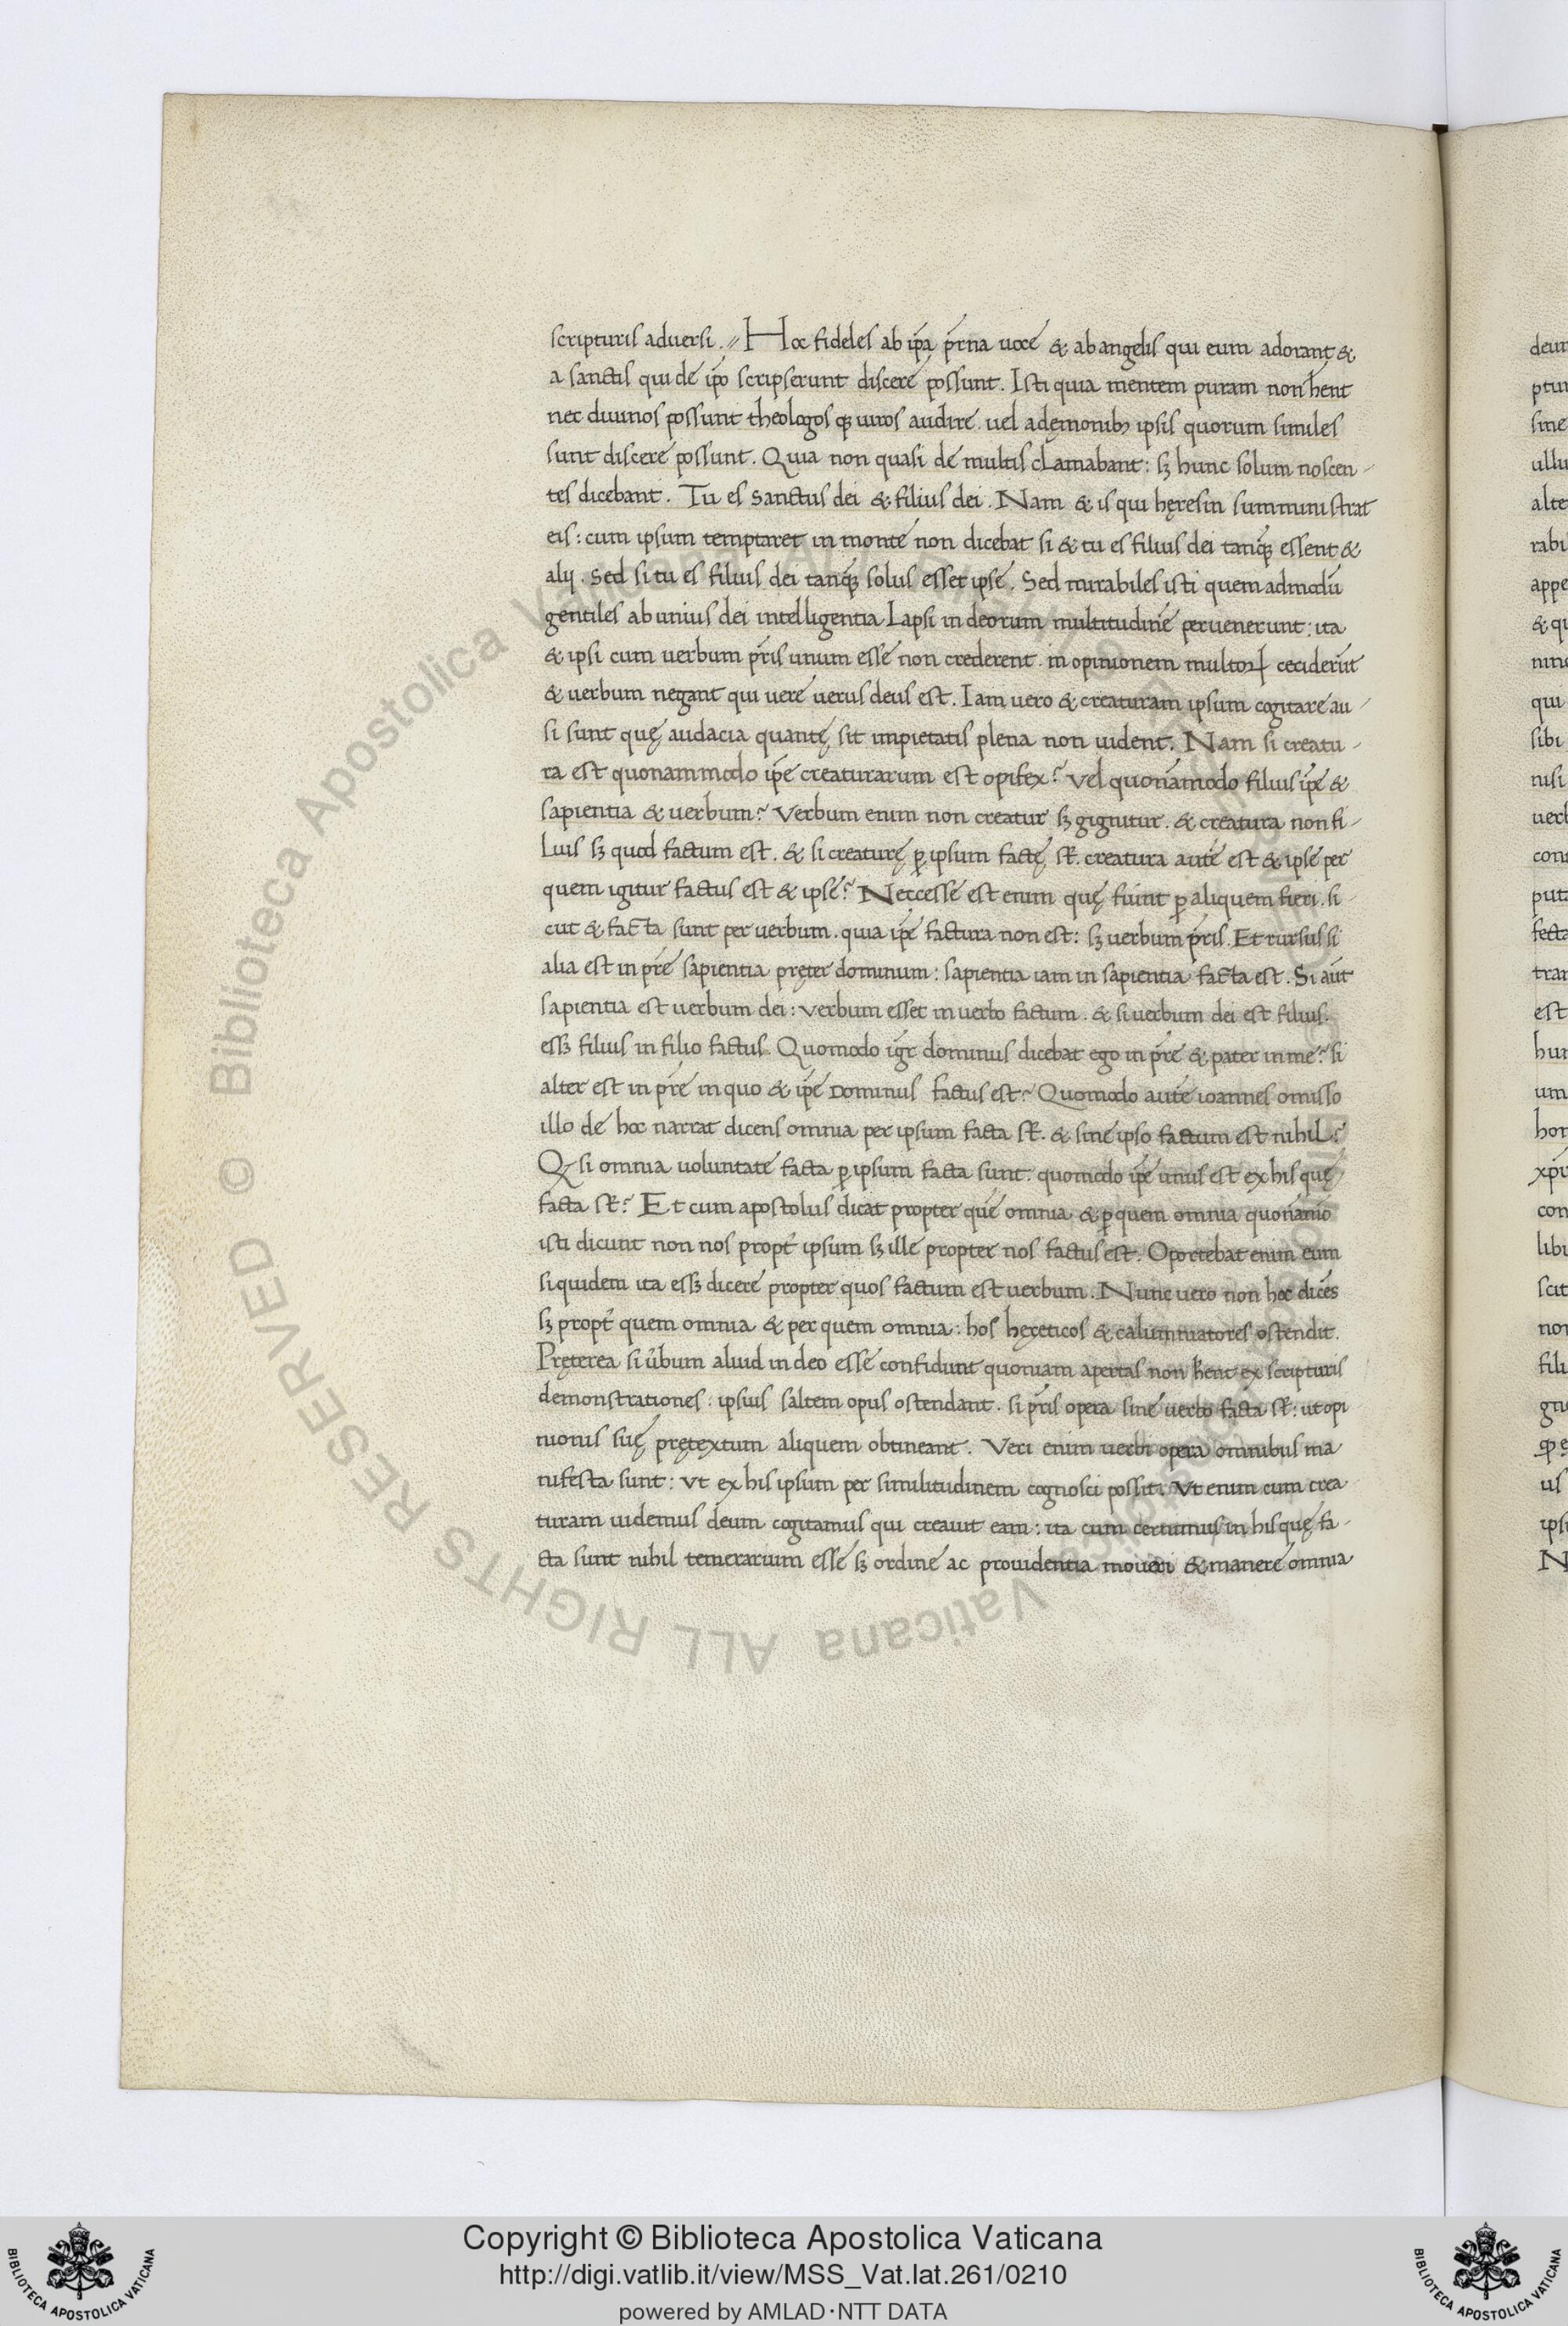 scripturis aduersi. // Hoc fideles ab ip̄a pr̄na uoce & ab angelis qui eum adorant &
a sanctis qui de ip̄o scripserunt discere possunt. Isti quia mentem puram non hent
nec diuinos possunt theologos q̨ uiros audire. uel adęmonibꝫ ipsis quorum similes
sunt discere possunt. Quia non quasi de multis clamabant: sꝫ hunc solum noscen-
tes dicebant. Tu es sanctus dei & filius dei. Nam & is qui hęresin sumministrat
eis: cum ipsum temptaret in monte non dicebat si & tu es filius dei tanqꝫ essent &
alij. Sed si tu es filius dei tanqꝫ solus esset ipse. Sed mirabiles isti quem admodū
gentiles ab unius dei intelligentia Lapsi in deorum multitudinē peruenerunt: ita
& ipsi cum uerbum pr̄is unum esse non crederent. in opinionem multoꝝ ceciderūt
& uerbum negant qui uere uerus deus est. Iam uero & creaturam ipsum cogitare au-
si sunt quę audacia quantę sit impietatis plena non uident. Nam si creatu-
ra est quonammodo ip̄e creaturarum est opifex? Vel quonāmodo filius ip̄e &
sapientia & uerbum? Verbum enim non creatur sꝫ gignitur. & creatura non fi-
Lius sꝫ quod factum est. & si creaturę ꝑ ipsum factę st̄. creatura autē est & ipse per
quem igitur factus est & ipse? Neccesse est enim quę fiunt ꝑ aliquem fieri. si-
cut & facta sunt per uerbum. quia ip̄e factura non est: sꝫ uerbum pr̄is. Et rursus si
alia est in pr̄e sapientia pręter dominum: sapientia iam in sapientia facta est. Si aūt
sapientia est uerbum dei: verbum esset in uerbo factum. & si uerbum dei est filius:
essꝫ filius in filio factus. Quomodo igr̄ dominus dicebat ego in pr̄e & pater in me? si
alter est in pr̄e in quo & ip̄e Dominus factus est? Quomodo autē ioannes omisso
illo de hoc narrat dicens omnia per ipsum facta st̄. & sine ipso factum est nihil?
Qꝫ si omnia uoluntate facta ꝑ ipsum facta sunt. quomodo ip̄e unus est ex his quę
facta st̄? Et cum apostolus dicat propter quē omnia & ꝑ quem omnia quonāmo
isti dicunt non nos propt̄ ipsum sꝫ ille propter nos factus est. Oportebat enim eum
siquidem ita essꝫ dicere propter quos factum est uerbum. Nunc uero non hoc dicēs
sꝫ propt̄ quem omnia & per quem omnia: hos hęreticos & calumniatores ostendit.
Pręterea si u̇bum aliud in deo esse confidunt quoniam apertas non hent ex scripturis
demonstrationes: ipsius saltem opus ostendant. si pr̄is opera sine uerbo facta st̄: ut opi
nionis suę prętextum aliquem obtineant. Veri enim uerbi opera omnibus ma
nifesta sunt: vt ex his ipsum per similitudinem cognosci possit. Vt enim cum crea
turam uidemus deum cogitamus qui creauit eam: ita cum cernimus in his quę fa-
cta sunt nihil temerarium esse sꝫ ordine ac prouidentia moueri & manere omnia
deum
sine
alte
rabi
appe
& qu
qui
sibi
nisi
uerb
con
est
um
con
libi
scit
non
us
ips
N
© Biblioteca Apostolica Vaticana ALL RIGHTS RESERVED
Copyright © Biblioteca Apostolica Vaticana
http://digi.vatlib.it/view/MSS_Vat.lat.261/0210
powered by AMLAD·NTT DATA
BIBLIOTECA APOSTOLICA VATICANA
BIBLIOTECA APOSTOLICA VATICANA